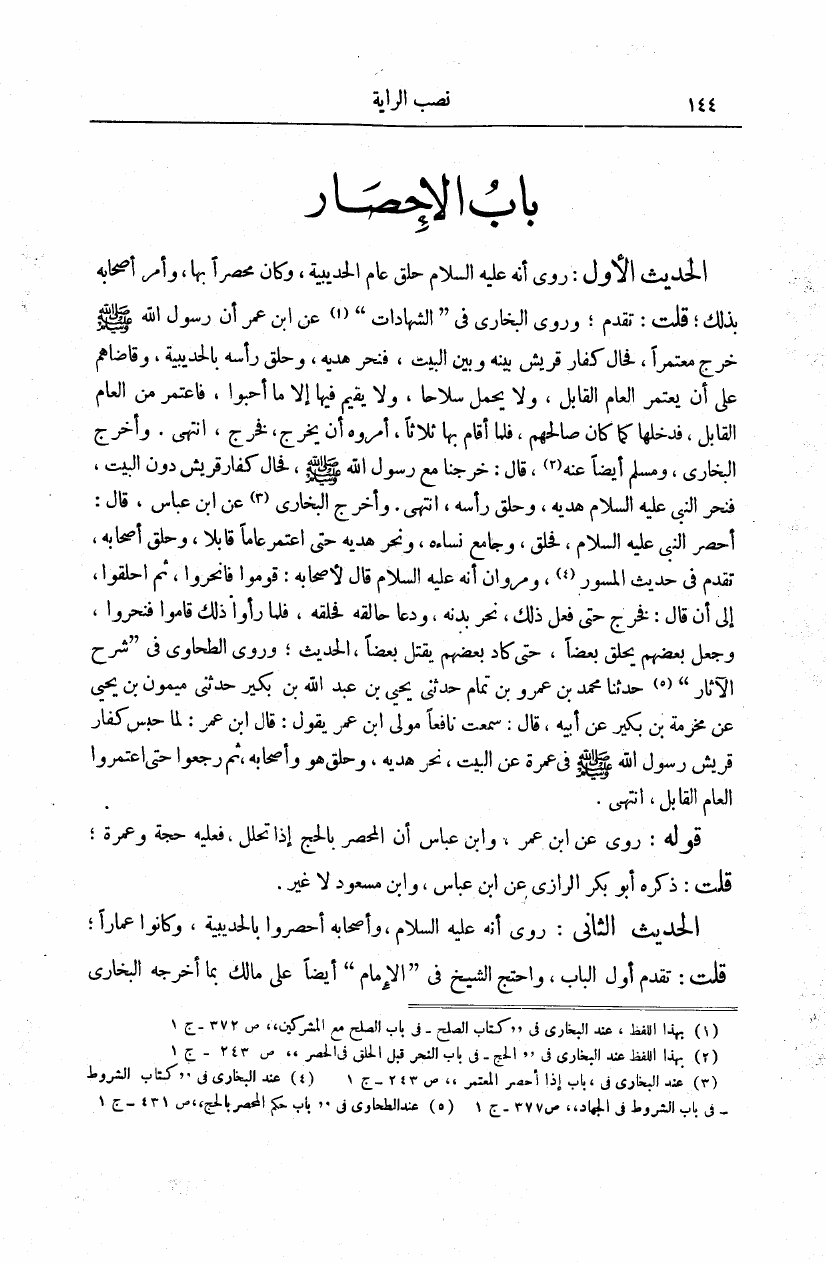 ١٤٤ نصب الراية
بابُ الإحصَار
الحديث الأول : روى أنه عليه السلام حلق عام الحديبية ، وكان محصراً بها ، وأمر أصحابه
بذلك ؛ قلت : تقدم ؛ وروى البخارى فى " الشهادات " (١) عن ابن عمر أن رسول الله ﷺ
خرج معتمراً ، فحال كفار قريش بينه وبين البيت ، فنحر هديه ، وحلق رأسه بالحديبية ، وقاضاهم
على أن يعتمر العام القابل ، ولا يحمل سلاحا ، ولا يقيم فيها إلا ما أحبوا ، فاعتمر من العام
القابل ، فدخلها كما كان صالحهم ، فلما أقام بها ثلاثاً ، أمروه أن يخرج ، فخرج ، انتهى . وأخرج
البخارى ، ومسلم أيضاً عنه (٢) ، قال : خرجنا مع رسول الله ﷺ ، فحال كفار قريش دون البيت ،
فنحر النبى عليه السلام هديه ، وحلق رأسه ، انتهى . وأخرج البخارى (٣) عن ابن عباس ، قال :
أحصر النبى عليه السلام ، فحلق ، وجامع نساءه ، ونحر هديه حتى اعتمر عاماً قابلا ، وحلق أصحابه ،
تقدم فى حديث المسور (٤) ، ومروان أنه عليه السلام قال لأصحابه : قوموا فانحروا ، ثم احلقوا ،
إلى أن قال : فخرج حتى فعل ذلك ، نحر بدنه ، ودعا حالقه فحلقه ، فلما رأوا ذلك قاموا فنحروا ،
وجعل بعضهم يحلق بعضاً ، حتى كاد بعضهم يقتل بعضاً ، الحديث ؛ وروى الطحاوى فى " شرح
الآثار " (٥) حدثنا محمد بن عمرو بن تمام حدثنى يحيى بن عبد الله بن بكير حدثنى ميمون بن يحيى
عن مخرمة بن بكير عن أبيه ، قال : سمعت نافعاً مولى ابن عمر يقول : قال ابن عمر : لما حبس كفار
قريش رسول الله ﷺ فى عمرة عن البيت ، نحر هديه ، وحلق هو وأصحابه ، ثم رجعوا حتى اعتمروا
العام القابل ، انتهى .
قوله : روى عن ابن عمر ، وابن عباس أن المحصر بالحج إذا تحلل ، فعليه حجة وعمرة ؛
قلت : ذكره أبو بكر الرازى عن ابن عباس ، وابن مسعود لا غير .
الحديث الثانى : روى أنه عليه السلام ، وأصحابه أحصروا بالحديبية ، وكانوا عماراً ؛
قلت : تقدم أول الباب ، واحتج الشيخ فى " الإمام " أيضاً على مالك بما أخرجه البخارى
(١) بهذا اللفظ ، عند البخارى فى ,, كتاب الصلح ـ فى باب الصلح مع المشركين ،، ص ٣٧٢ ـ ج ١
(٢) بهذا اللفظ عند البخارى فى ,, الحج ـ فى باب النحر قبل الحلق فى الحصر ،، ص ٢٤٣ ـ ج ١
(٣) عند البخارى فى ,, باب إذا أحصر المعتمر ،، ص ٢٤٣ ـ ج ١ (٤) عند البخارى فى ,, كتاب الشروط
ـ فى باب الشروط فى الجهاد ،، ص ٣٧٧ ـ ج ١ (٥) عند الطحاوى فى ,, باب حكم المحصر بالحج ،، ص ٤٣١ ـ ج ١